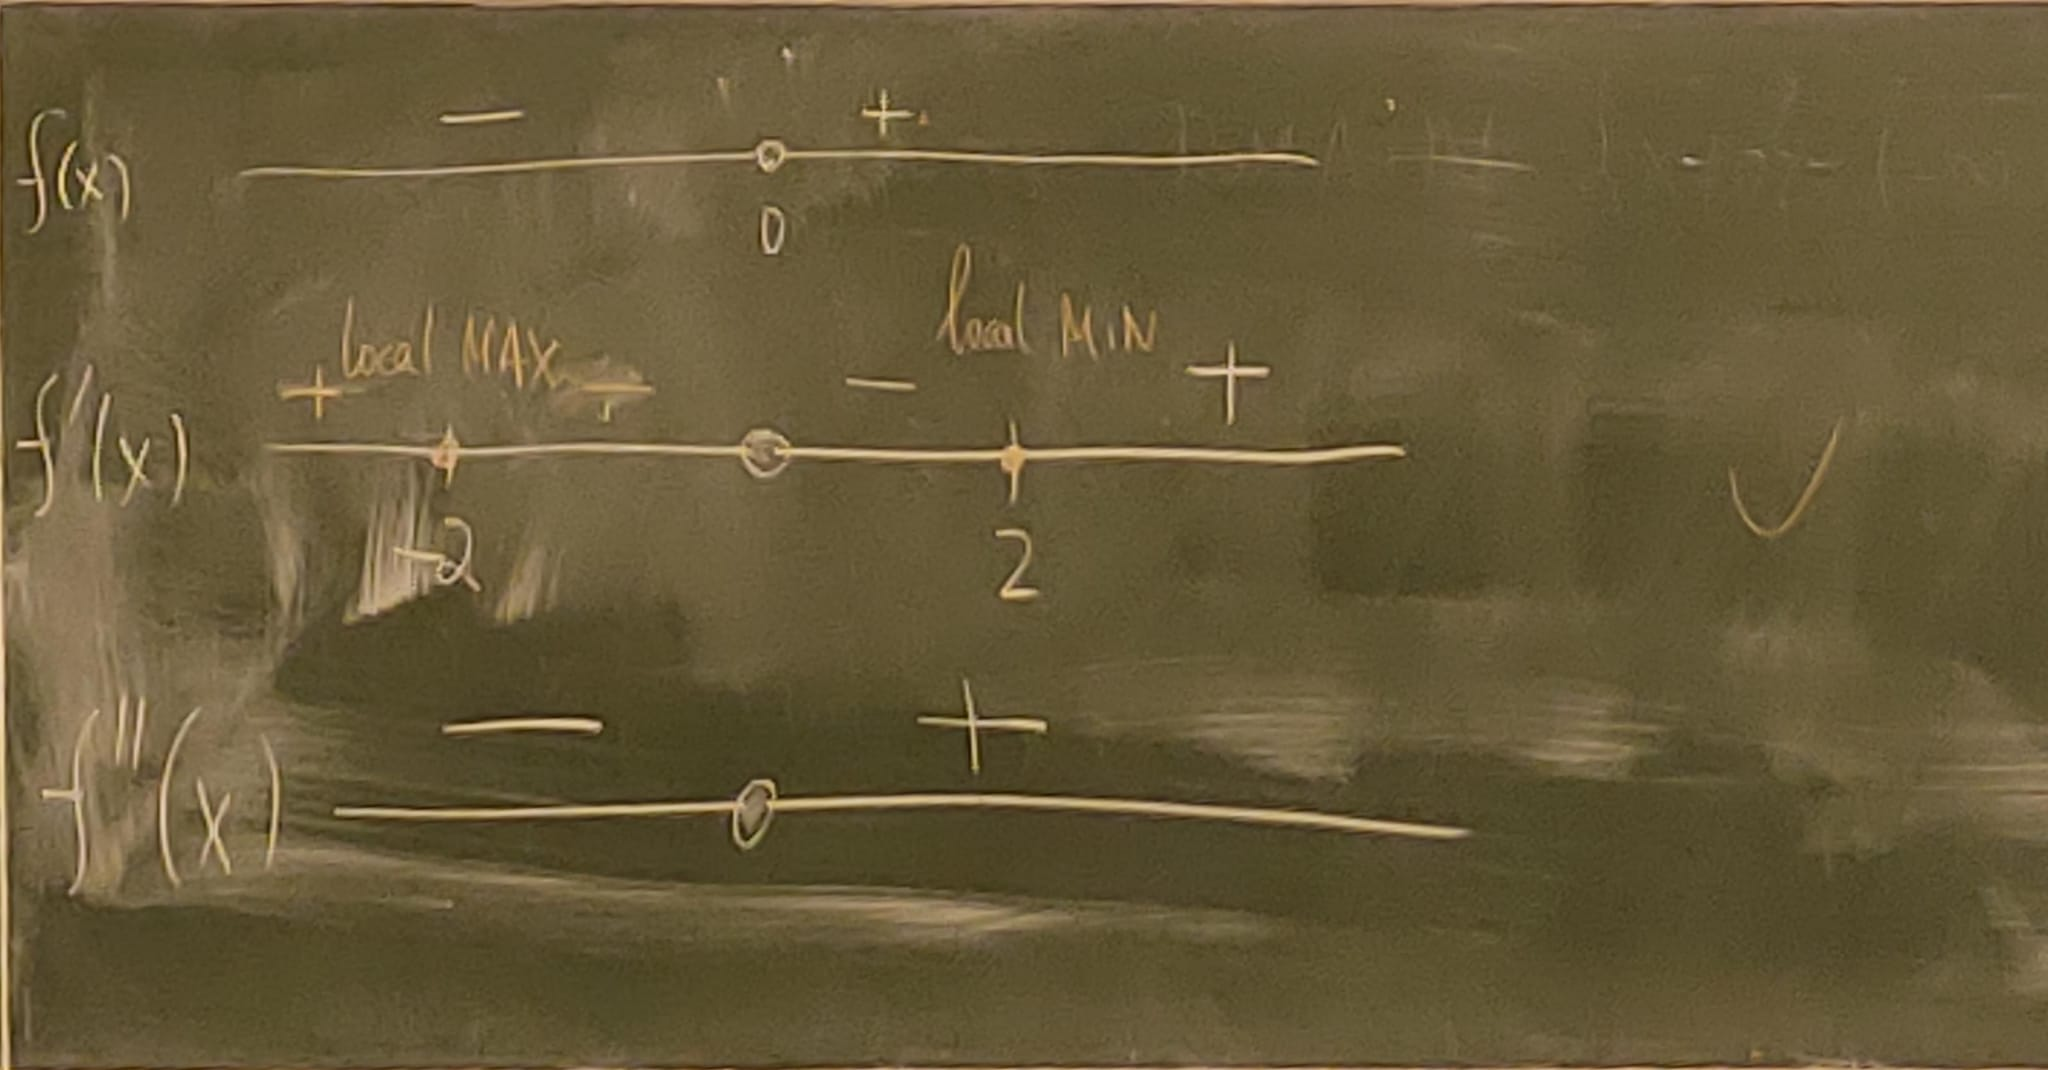 f(x) − +
0
local MAX local MIN
f'(x) + − − +
-2 2
f''(x) − +